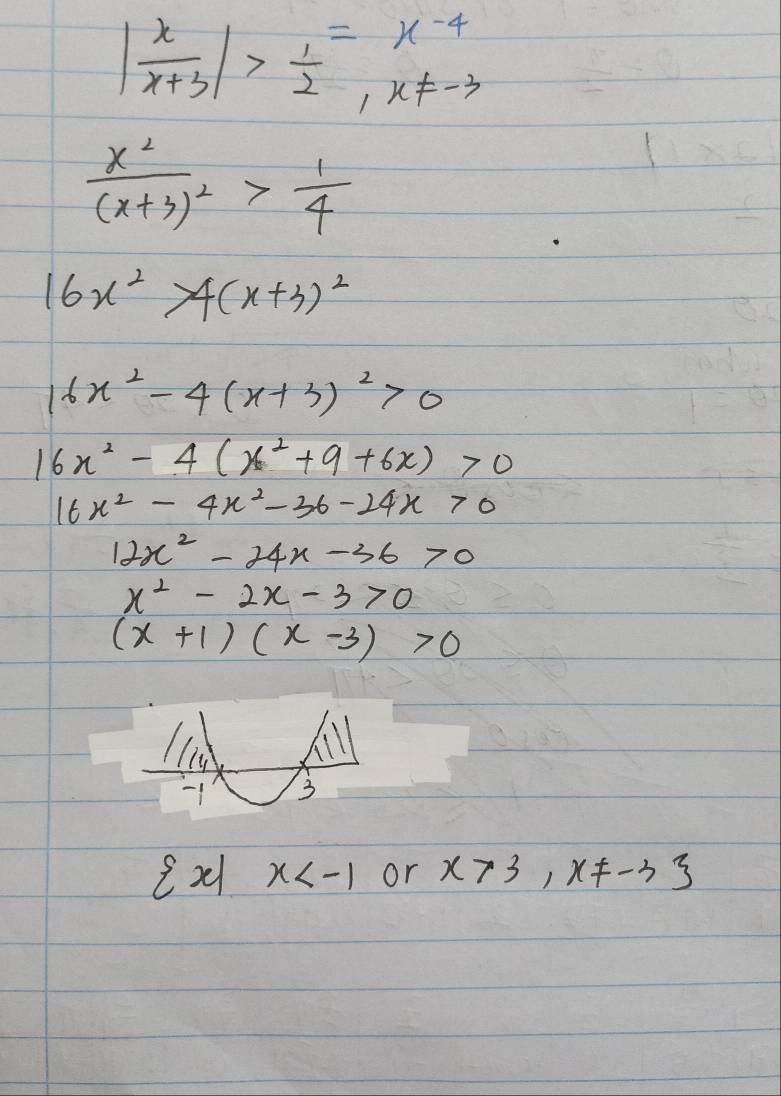 |x/(x+3)| > 1/2 = x-4 , x≠-3
x²/(x+3)² > 1/4
16x² >4(x+3)²
16x² - 4(x+3)² > 0
16x² - 4(x²+9+6x) > 0
16x² - 4x²-36-24x > 0
12x² - 24x - 36 > 0
x² - 2x - 3 > 0
(x+1)(x-3) > 0
-1 3
{x| x<-1 or x>3, x≠-3}